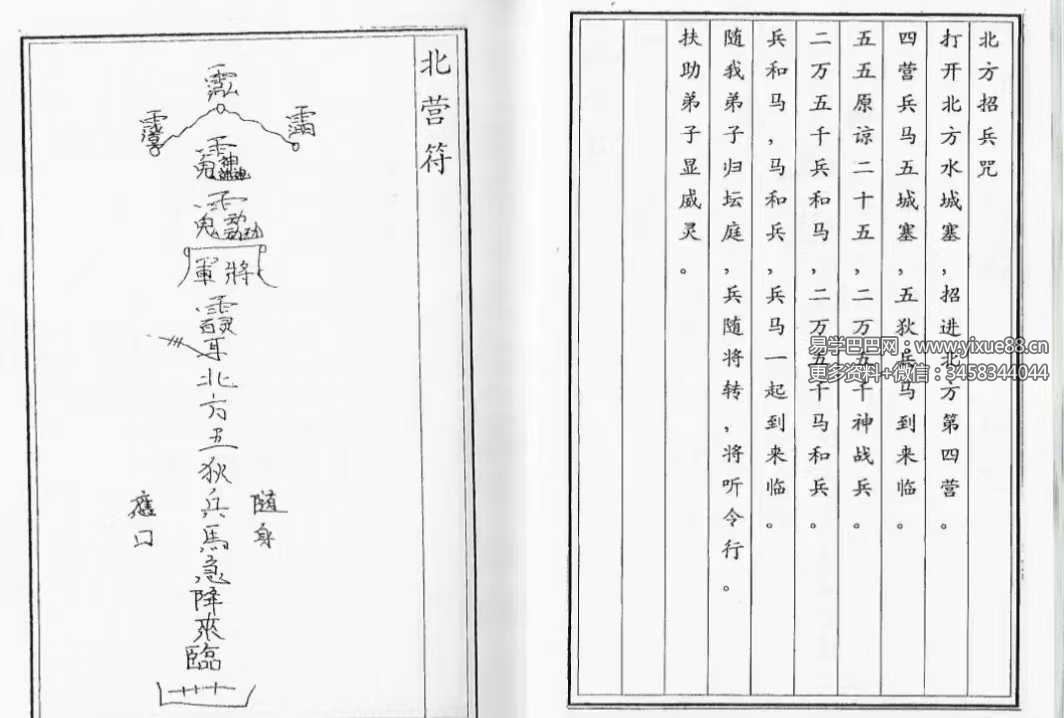 北方招兵咒
打开北方水城塞，招进北方第四营。
四营兵马五城塞，五狄兵马到来临。
五五原谅二十五，二万五千神战兵。
二万五千兵和马，二万五千马和兵。
兵和马，马和兵，兵马一起到来临。
随我弟子归坛庭，兵随将转，将听令行。
扶助弟子显威灵。
北营符
將軍
北方五狄兵馬急降來臨
随身
應口
易学巴巴网：www.yixue88.cn
更多资料+微信：3458344044